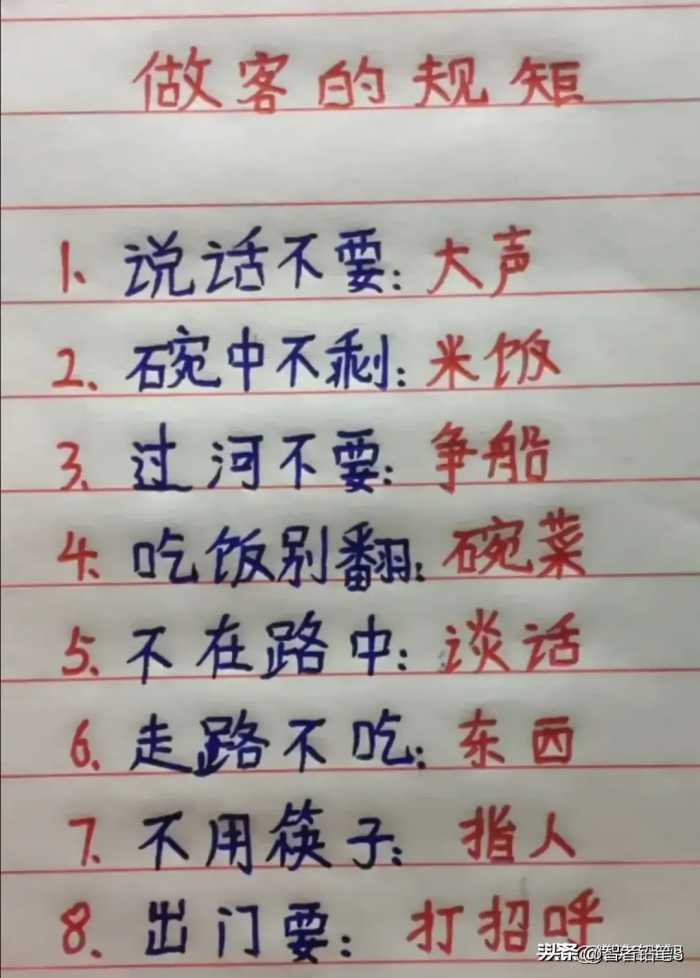 做客的规矩
1、说话不要:大声
2、碗中不剩:米饭
3、过河不要:争船
4、吃饭别翻:碗菜
5、不在路中:谈话
6、走路不吃:东西
7、不用筷子:指人
8、出门要:打招呼
头条@智者铅笔